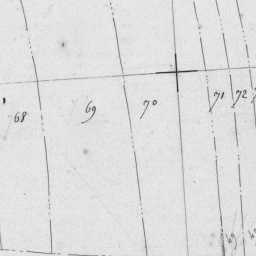 68 69 70 71 72